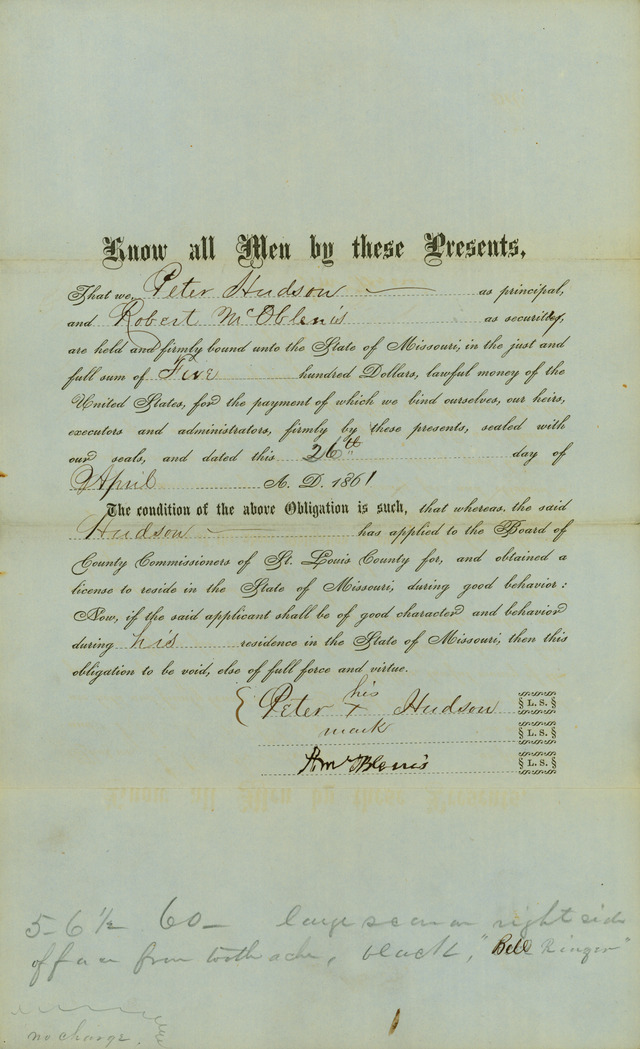 Know all Men by these Presents,
That we, Peter Hudson as principal,
and Robert McOblenis as security,
are held and firmly bound unto the State of Missouri, in the just and
full sum of Five hundred Dollars, lawful money of the
United States, for the payment of which we bind ourselves, our heirs,
executors and administrators, firmly by these presents, sealed with
our seals, and dated this 26th day of
April A. D. 1861
The condition of the above Obligation is such, that whereas, the said
Hudson has applied to the Board of
County Commissioners of St. Louis County for, and obtained a
license to reside in the State of Missouri, during good behavior:
Now, if the said applicant shall be of good character and behavior
during his residence in the State of Missouri, then this
obligation to be void, else of full force and virtue.
his
Peter X Hudson L. S.
mark L. S.
R McOblenis L. S.
5-6 1/2 60- large scar on right side
of face from tooth ache, black, "Bell Ringer"
no charge.